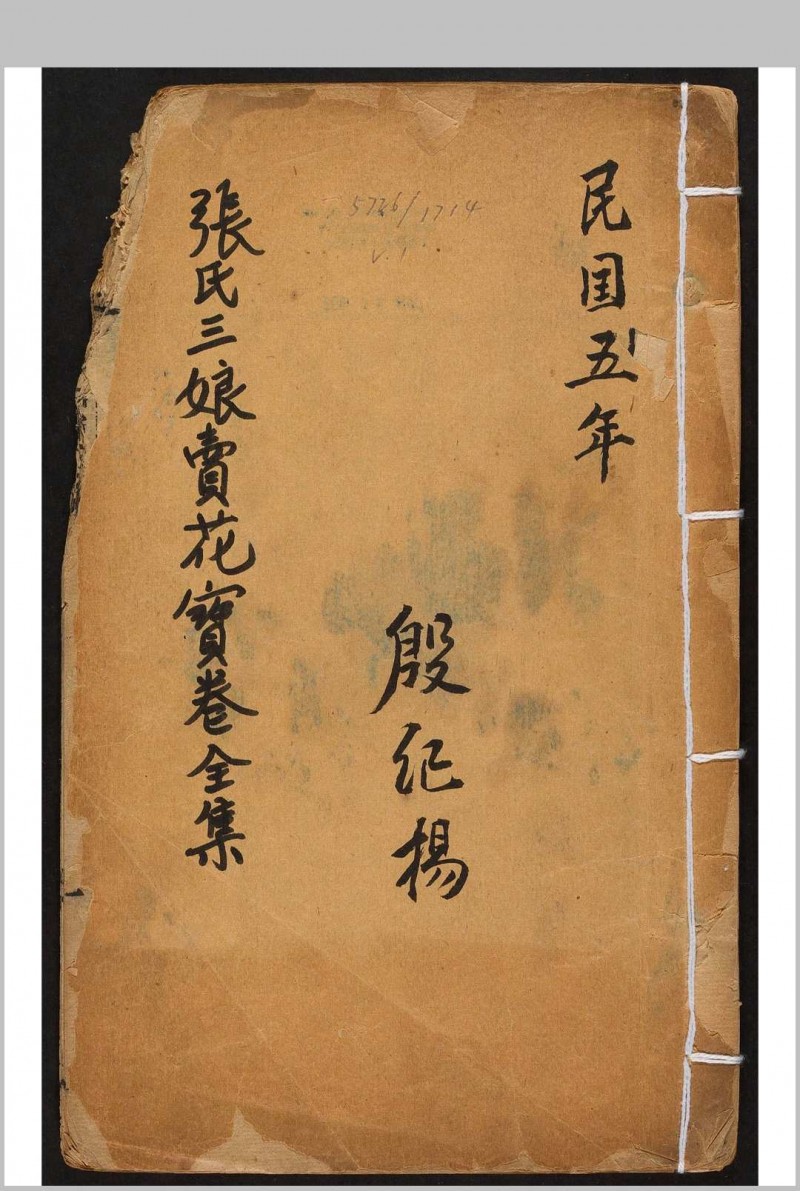 民囯五年
殷纪楊
張氏三娘賣花寳卷全集
5726/1714
v.1